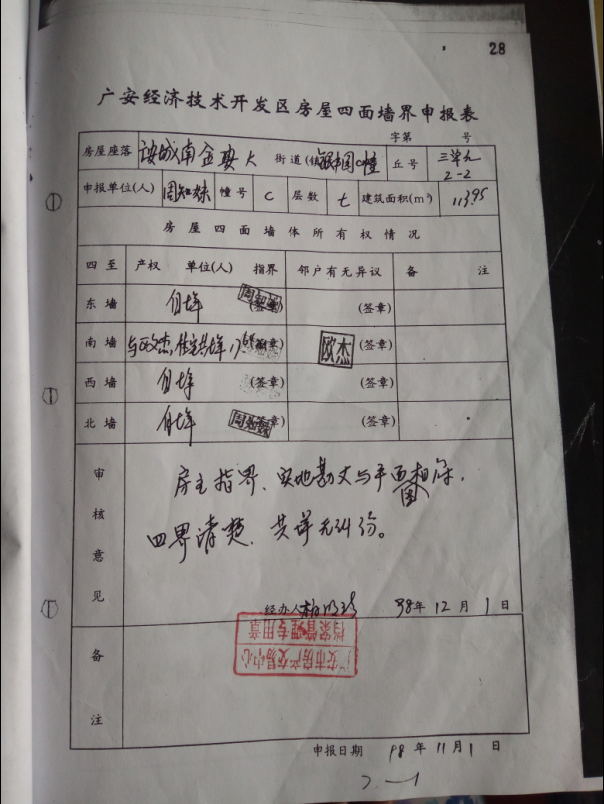 28
广安经济技术开发区房屋四面墙界申报表
字第 号
房屋座落 城南金安大 街道(镇 C幢 丘号 三单元 2-2
申报单位(人) 周知 幢号 C 层数 七 建筑面积(m²) 113.95
房屋四面墙体所有权情况
四至 产权 单位(人) 指界 邻户有无异议 备 注
东墙 自墙 (签章) (签章)
南墙 与欧杰住宅共墙 章) 欧杰 (签章)
西墙 自墙 (签章) (签章)
北墙 自墙 签章) (签章)
审核意见
房主指界、实地勘丈与平面图相符，
四界清楚、共墙无纠纷。
经办人 98年12月1日
广安市房产交易中心
档案管理专用章
备注
申报日期 98年11月1日
2-1